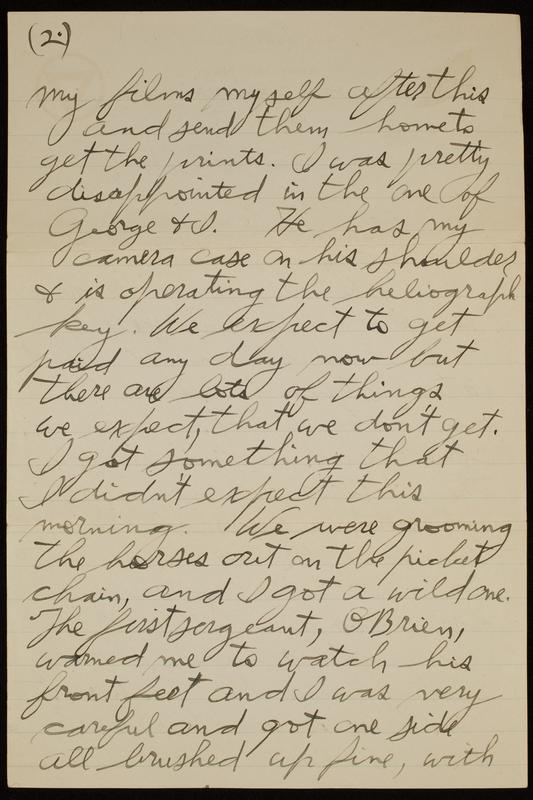 (2.)
my films myself after this
and send them home to
get the prints. I was pretty
disappointed in the one of
George & I. He has my
camera case on his shoulder
& is operating the heliograph
key. We expect to get
paid any day now but
there are lots of things
we expect, that we don't get.
I got something that
I didn't expect this
morning. We were grooming
the horses out on the picket
chain, and I got a wild one.
The first sergeant, O'Brien,
warned me to watch his
front feet and I was very
careful and got one side
all brushed up fine, with